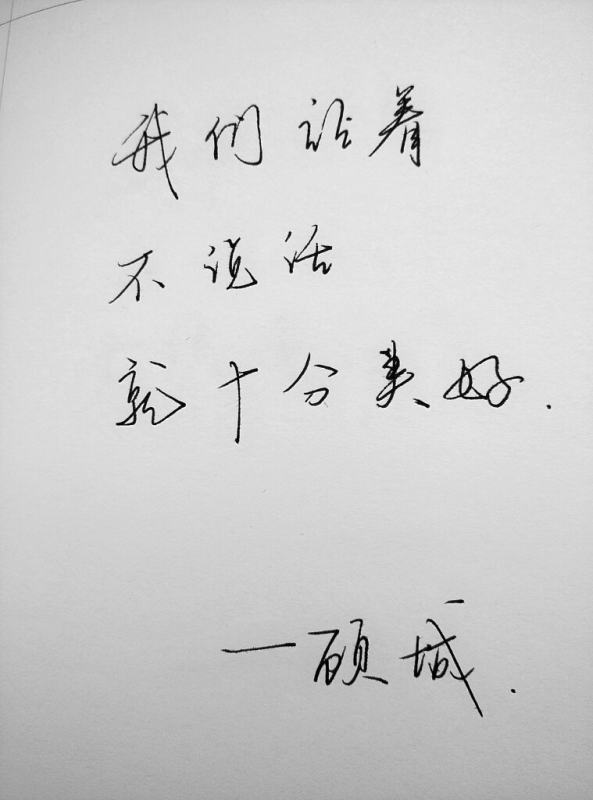 我们站着
不说话
就十分美好.
—顾城.